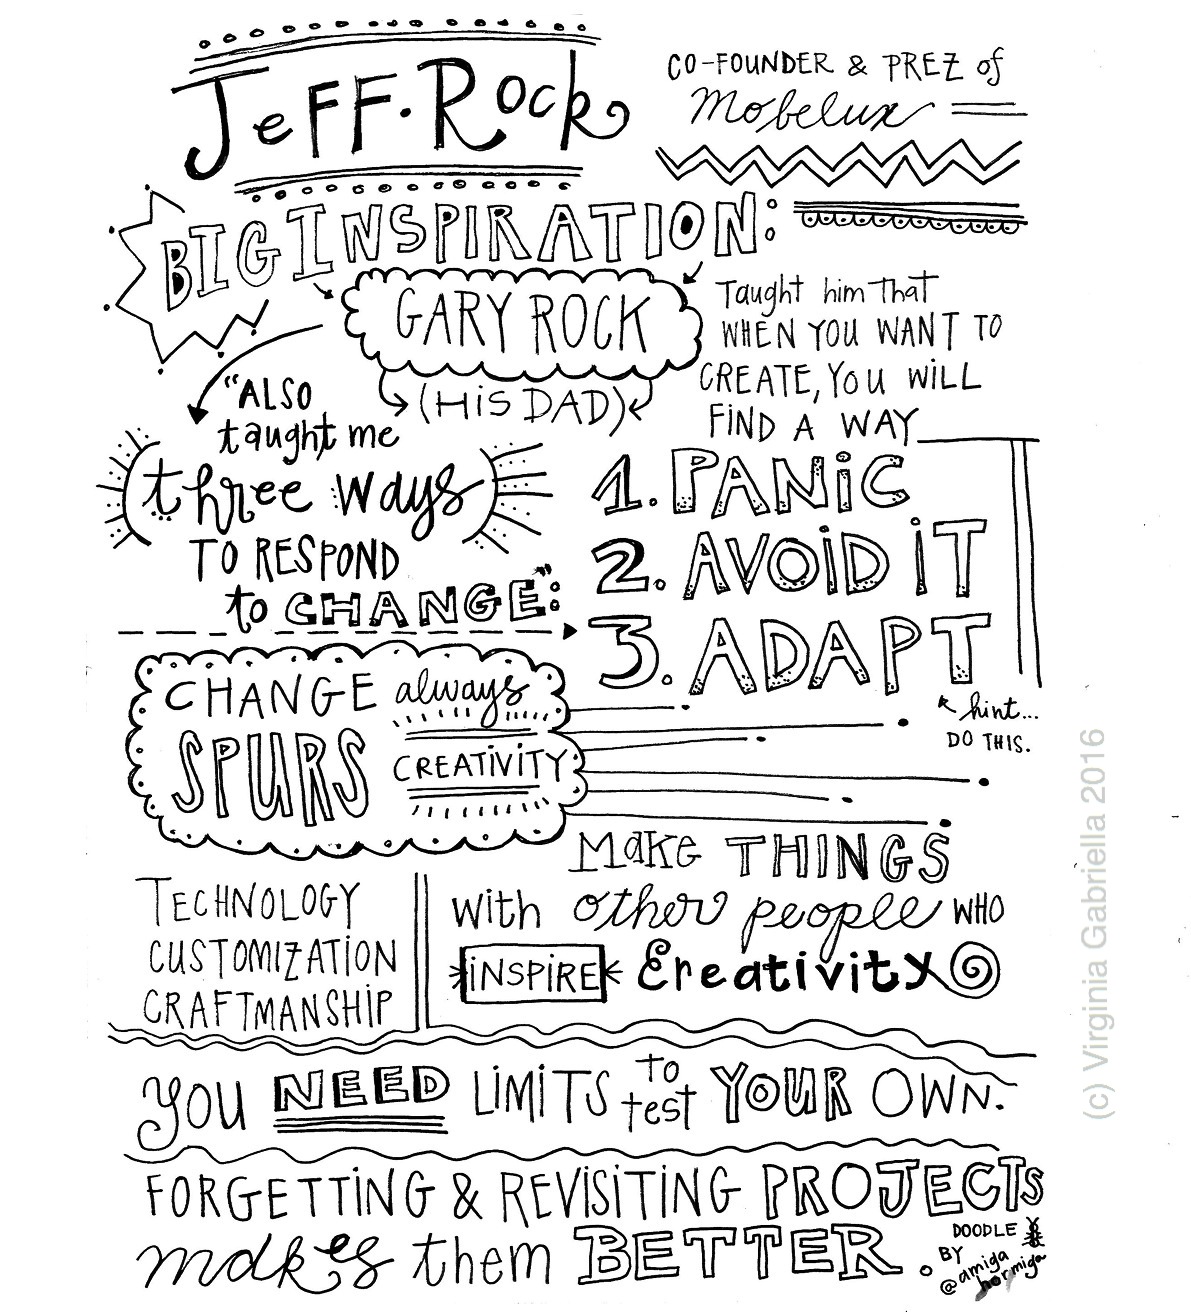 JEFF·ROCK
CO-FOUNDER & PREZ of
Mobelux
BIG INSPIRATION:
GARY ROCK
(HIS DAD)
Taught him that
WHEN YOU WANT TO
CREATE, YOU WILL
FIND A WAY
"ALSO
taught me
three ways
TO RESPOND
to CHANGE":
1. PANIC
2. AVOID IT
3. ADAPT
hint...
DO THIS.
CHANGE always
SPURS CREATIVITY
Make THINGS
with other people WHO
INSPIRE Creativity
TECHNOLOGY
CUSTOMIZATION
CRAFTMANSHIP
YOU NEED LIMITS to test YOUR OWN.
FORGETTING & REVISITING PROJECTS
makes them BETTER.
DOODLE
BY
@amiga
hormiga
(c) Virginia Gabriella 2016